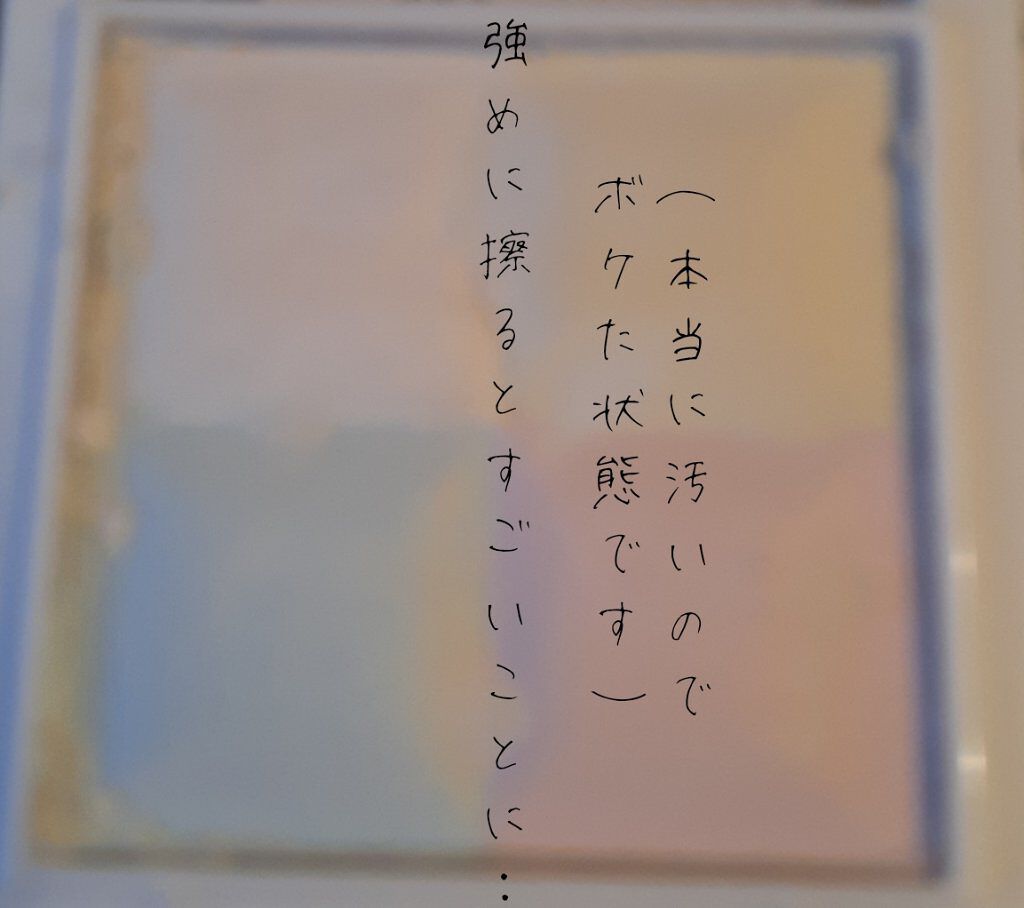 （本当に汚いので
ボケた状態です）
強めに擦るとすごいことに‥